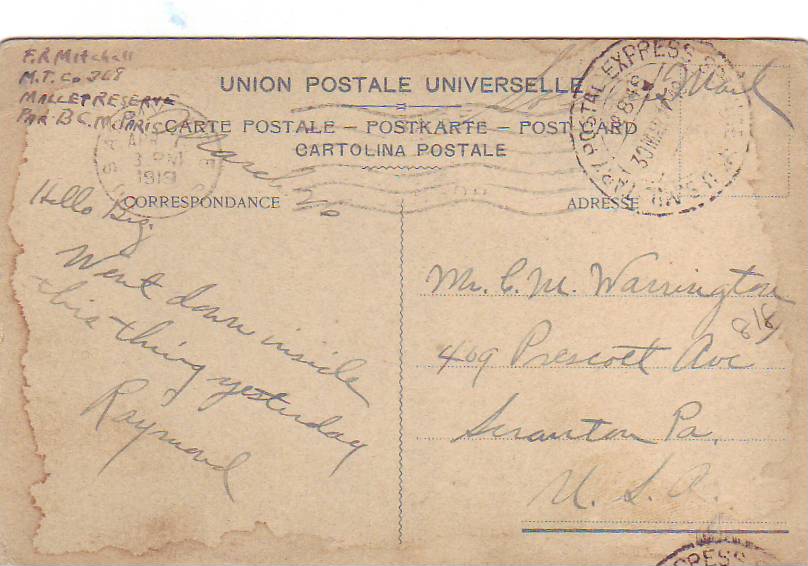 F.R. Mitchell
M.T. Co 368
MALLET RESERVE
PAR. B.C.M. PARIS
Mail
UNION POSTALE UNIVERSELLE
CARTE POSTALE – POSTKARTE – POST CARD
CARTOLINA POSTALE
POSTAL EXPRESS
30 MAR
3 PM
1919
March 26
CORRESPONDANCE
ADRESSE
Hello
Went down inside
this thing yesterday
Raymond
Mr. C. M. Warrington
818
409 Prescott Ave
Scranton Pa.
U. S. A.
PRESS